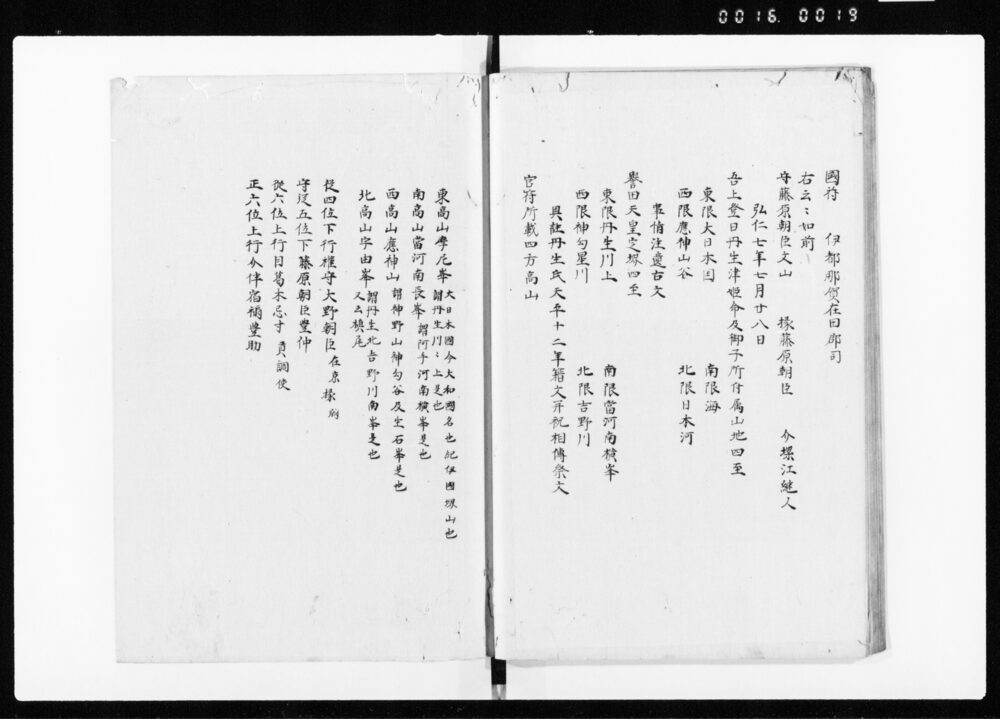 0016 0019
國符　伊都那賀在田郡司
右云〻如前
守藤原朝臣文山　掾藤原朝臣　介堺江継人
弘仁七年七月廿八日
吾上登日丹生津姫命及御子所付属山地四至
東限大日本国　南限海
西限應神山谷　北限日本河
事情注遠古文
誉田天皇定堺四至
東限丹生川上　南限當河南横峯
西限神勾星川　北限吉野川
具註丹生氏天平十二年籍文并祝相傳祭文
官符所載四方高山
東高山摩尼峯大日本國今大和國名也紀伊国堺山也
謂丹生川〻上是也
南高山當河南長峯謂阿手河南横峯是也
西高山應神山謂神野山神勾谷及生石峯是也
北高山字由峯謂丹生北吉野川南峯是也
又云槙尾
従四位下行権守大野朝臣在京掾
守従五位下藤原朝臣豊仲
従六位上行目葛木忌寸貢調使
正六位上行介伴宿祢豊助